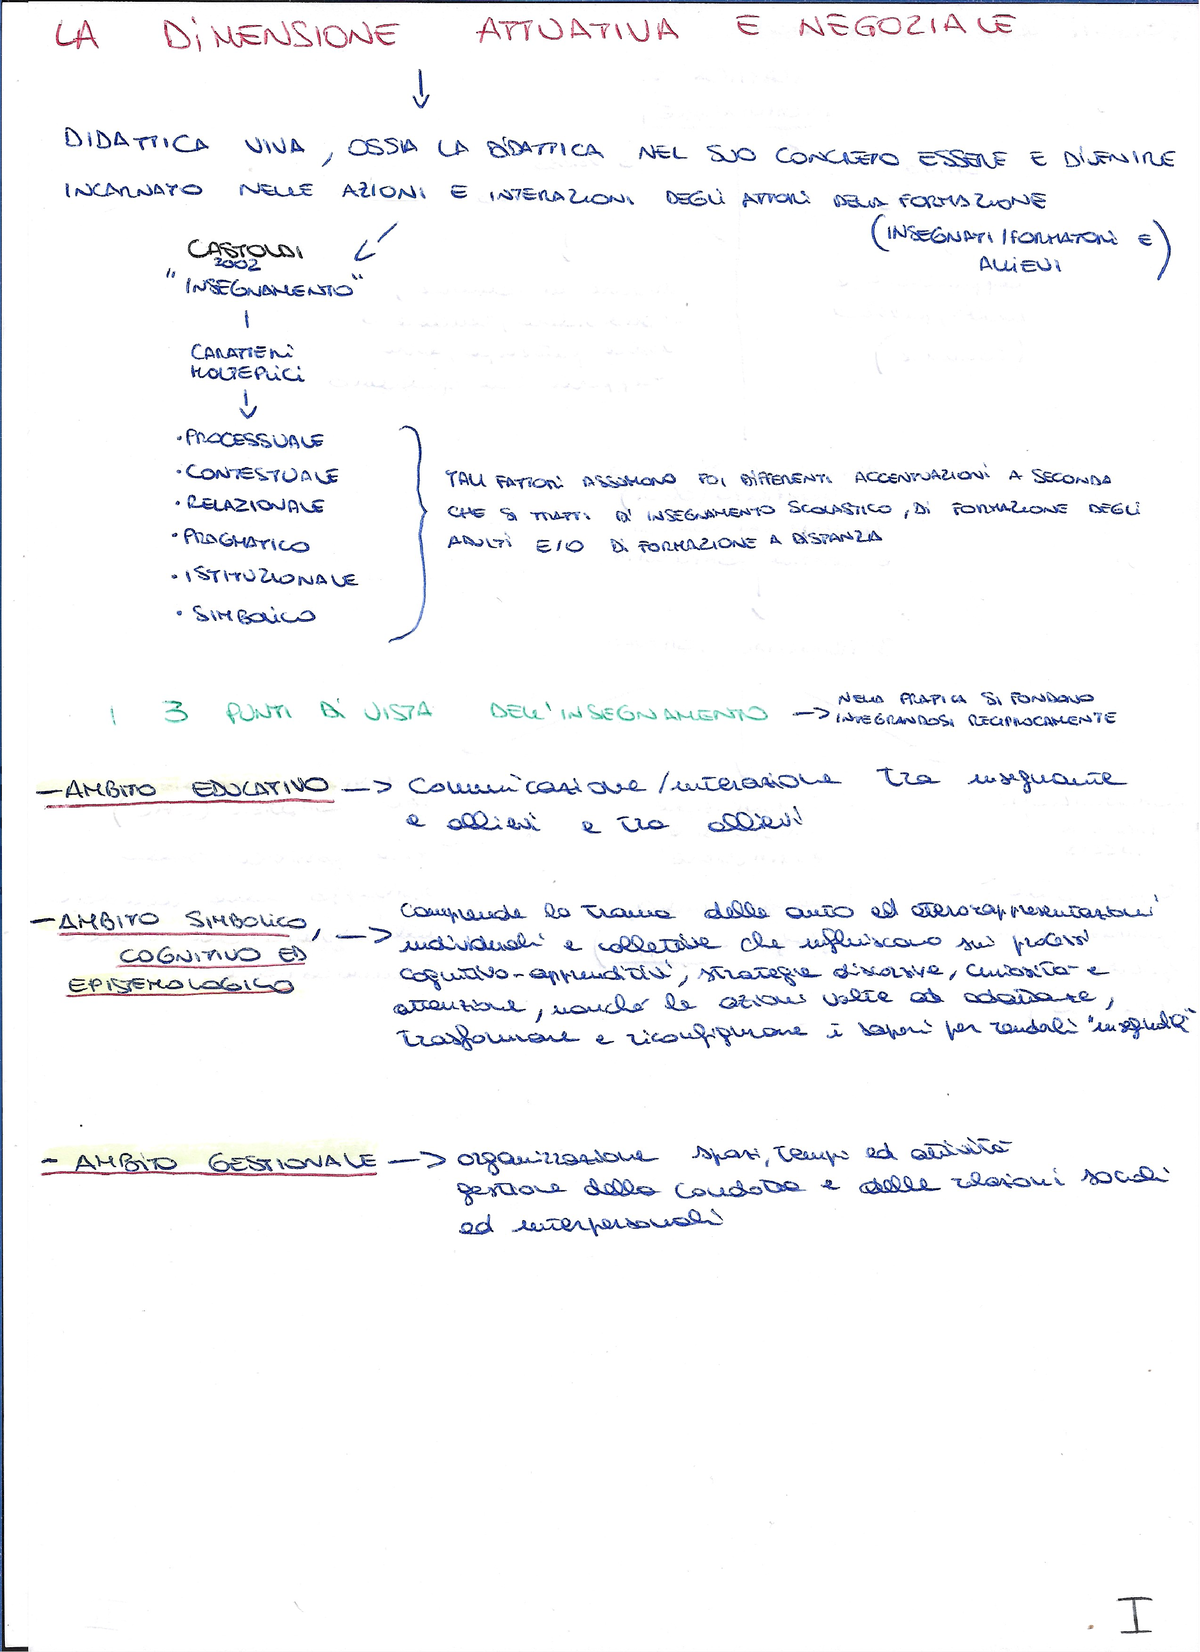 LA DIMENSIONE ATTUATIVA E NEGOZIALE
↓
DIDATTICA VIVA, OSSIA LA DIDATTICA NEL SUO CONCRETO ESSERE E DIVENIRE
INCARNATO NELLE AZIONI E INTERAZIONI DEGLI ATTORI DELLA FORMAZIONE
(INSEGNATI/FORMATORI E
ALLIEVI)
CASTOLDI
2002
"INSEGNAMENTO"
CARATTERI
MOLTEPLICI
↓
• PROCESSUALE
• CONTESTUALE
• RELAZIONALE
• PRAGMATICO
• ISTITUZIONALE
• SIMBOLICO
TALI FATTORI ASSUMONO POI DIFFERENTI ACCENTUAZIONI A SECONDA
CHE SI TRATTI DI INSEGNAMENTO SCOLASTICO, DI FORMAZIONE DEGLI
ADULTI E/O DI FORMAZIONE A DISTANZA
I 3 PUNTI DI VISTA DELL'INSEGNAMENTO → NELLA PRATICA SI FONDONO
INTEGRANDOSI RECIPROCAMENTE
- AMBITO EDUCATIVO → Comunicazione/interazione tra insegnante
e allievi e tra allievi
- AMBITO SIMBOLICO,
COGNITIVO ED
EPISTEMOLOGICO
→ Comprende la trama delle auto ed eterorappresentazioni
individuali e collettive che influiscono sui processi
cognitivo-apprenditivi, strategie discorsive, curiosità e
attenzione, nonché le azioni volte ad adattare,
trasformare e riconfigurare i saperi per renderli "insegnabili"
- AMBITO GESTIONALE → organizzazione spazi, tempi ed attività
gestione della condotta e delle relazioni sociali
ed interpersonali
I